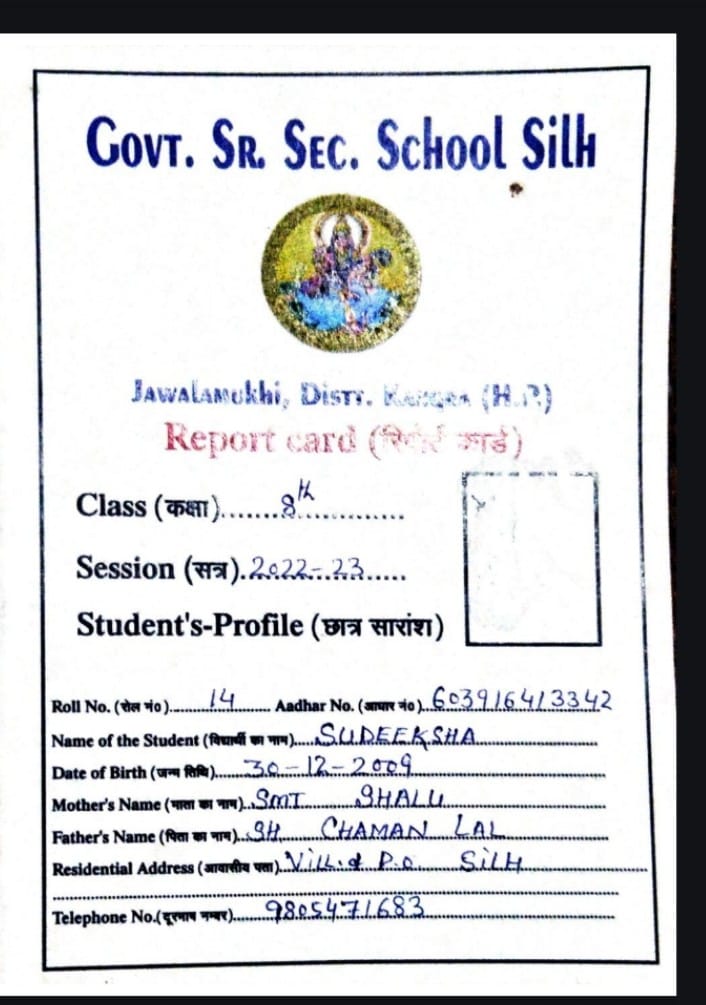 Govt. Sr. Sec. School Silh
Jawalamukhi, Distt. Kangra (H.P.)
Report card (रिपोर्ट कार्ड)
Class (कक्षा).......8th..............
Session (सत्र).2022-23.....
Student's-Profile (छात्र सारांश)
Roll No. (रोल नं०).........14......... Aadhar No. (आधार नं०).603916413342
Name of the Student (विद्यार्थी का नाम).....SUDEEKSHA
Date of Birth (जन्म तिथि)......30-12-2009
Mother's Name (माता का नाम)..SMT SHALU
Father's Name (पिता का नाम)..SH. CHAMAN LAL
Residential Address (आवासीय पता).Vill.& P.O. SILH
Telephone No.(दूरभाष नम्बर).......9805471683